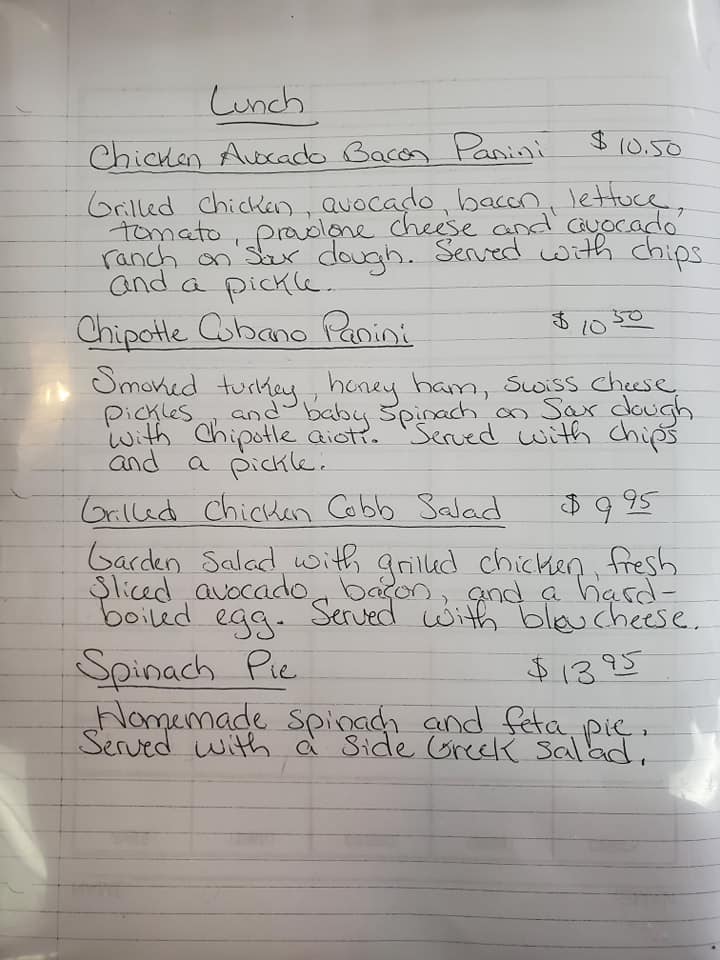 Lunch
Chicken Avocado Bacon Panini $10.50
Grilled chicken, avocado, bacon, lettuce,
tomato, provolone cheese and avocado
ranch on Sour dough. Served with chips
and a pickle.
Chipotle Cubano Panini $10 50
Smoked turkey, honey ham, swiss cheese
pickles, and baby spinach on Sour dough
with Chipotle aioti. Served with chips
and a pickle.
Grilled Chicken Cobb Salad $9 95
Garden Salad with grilled chicken, fresh
Sliced avocado, bacon, and a hard-
boiled egg. Served with bleu cheese.
Spinach Pie $13 95
Homemade spinach and feta pie.
Served with a side Greek salad.